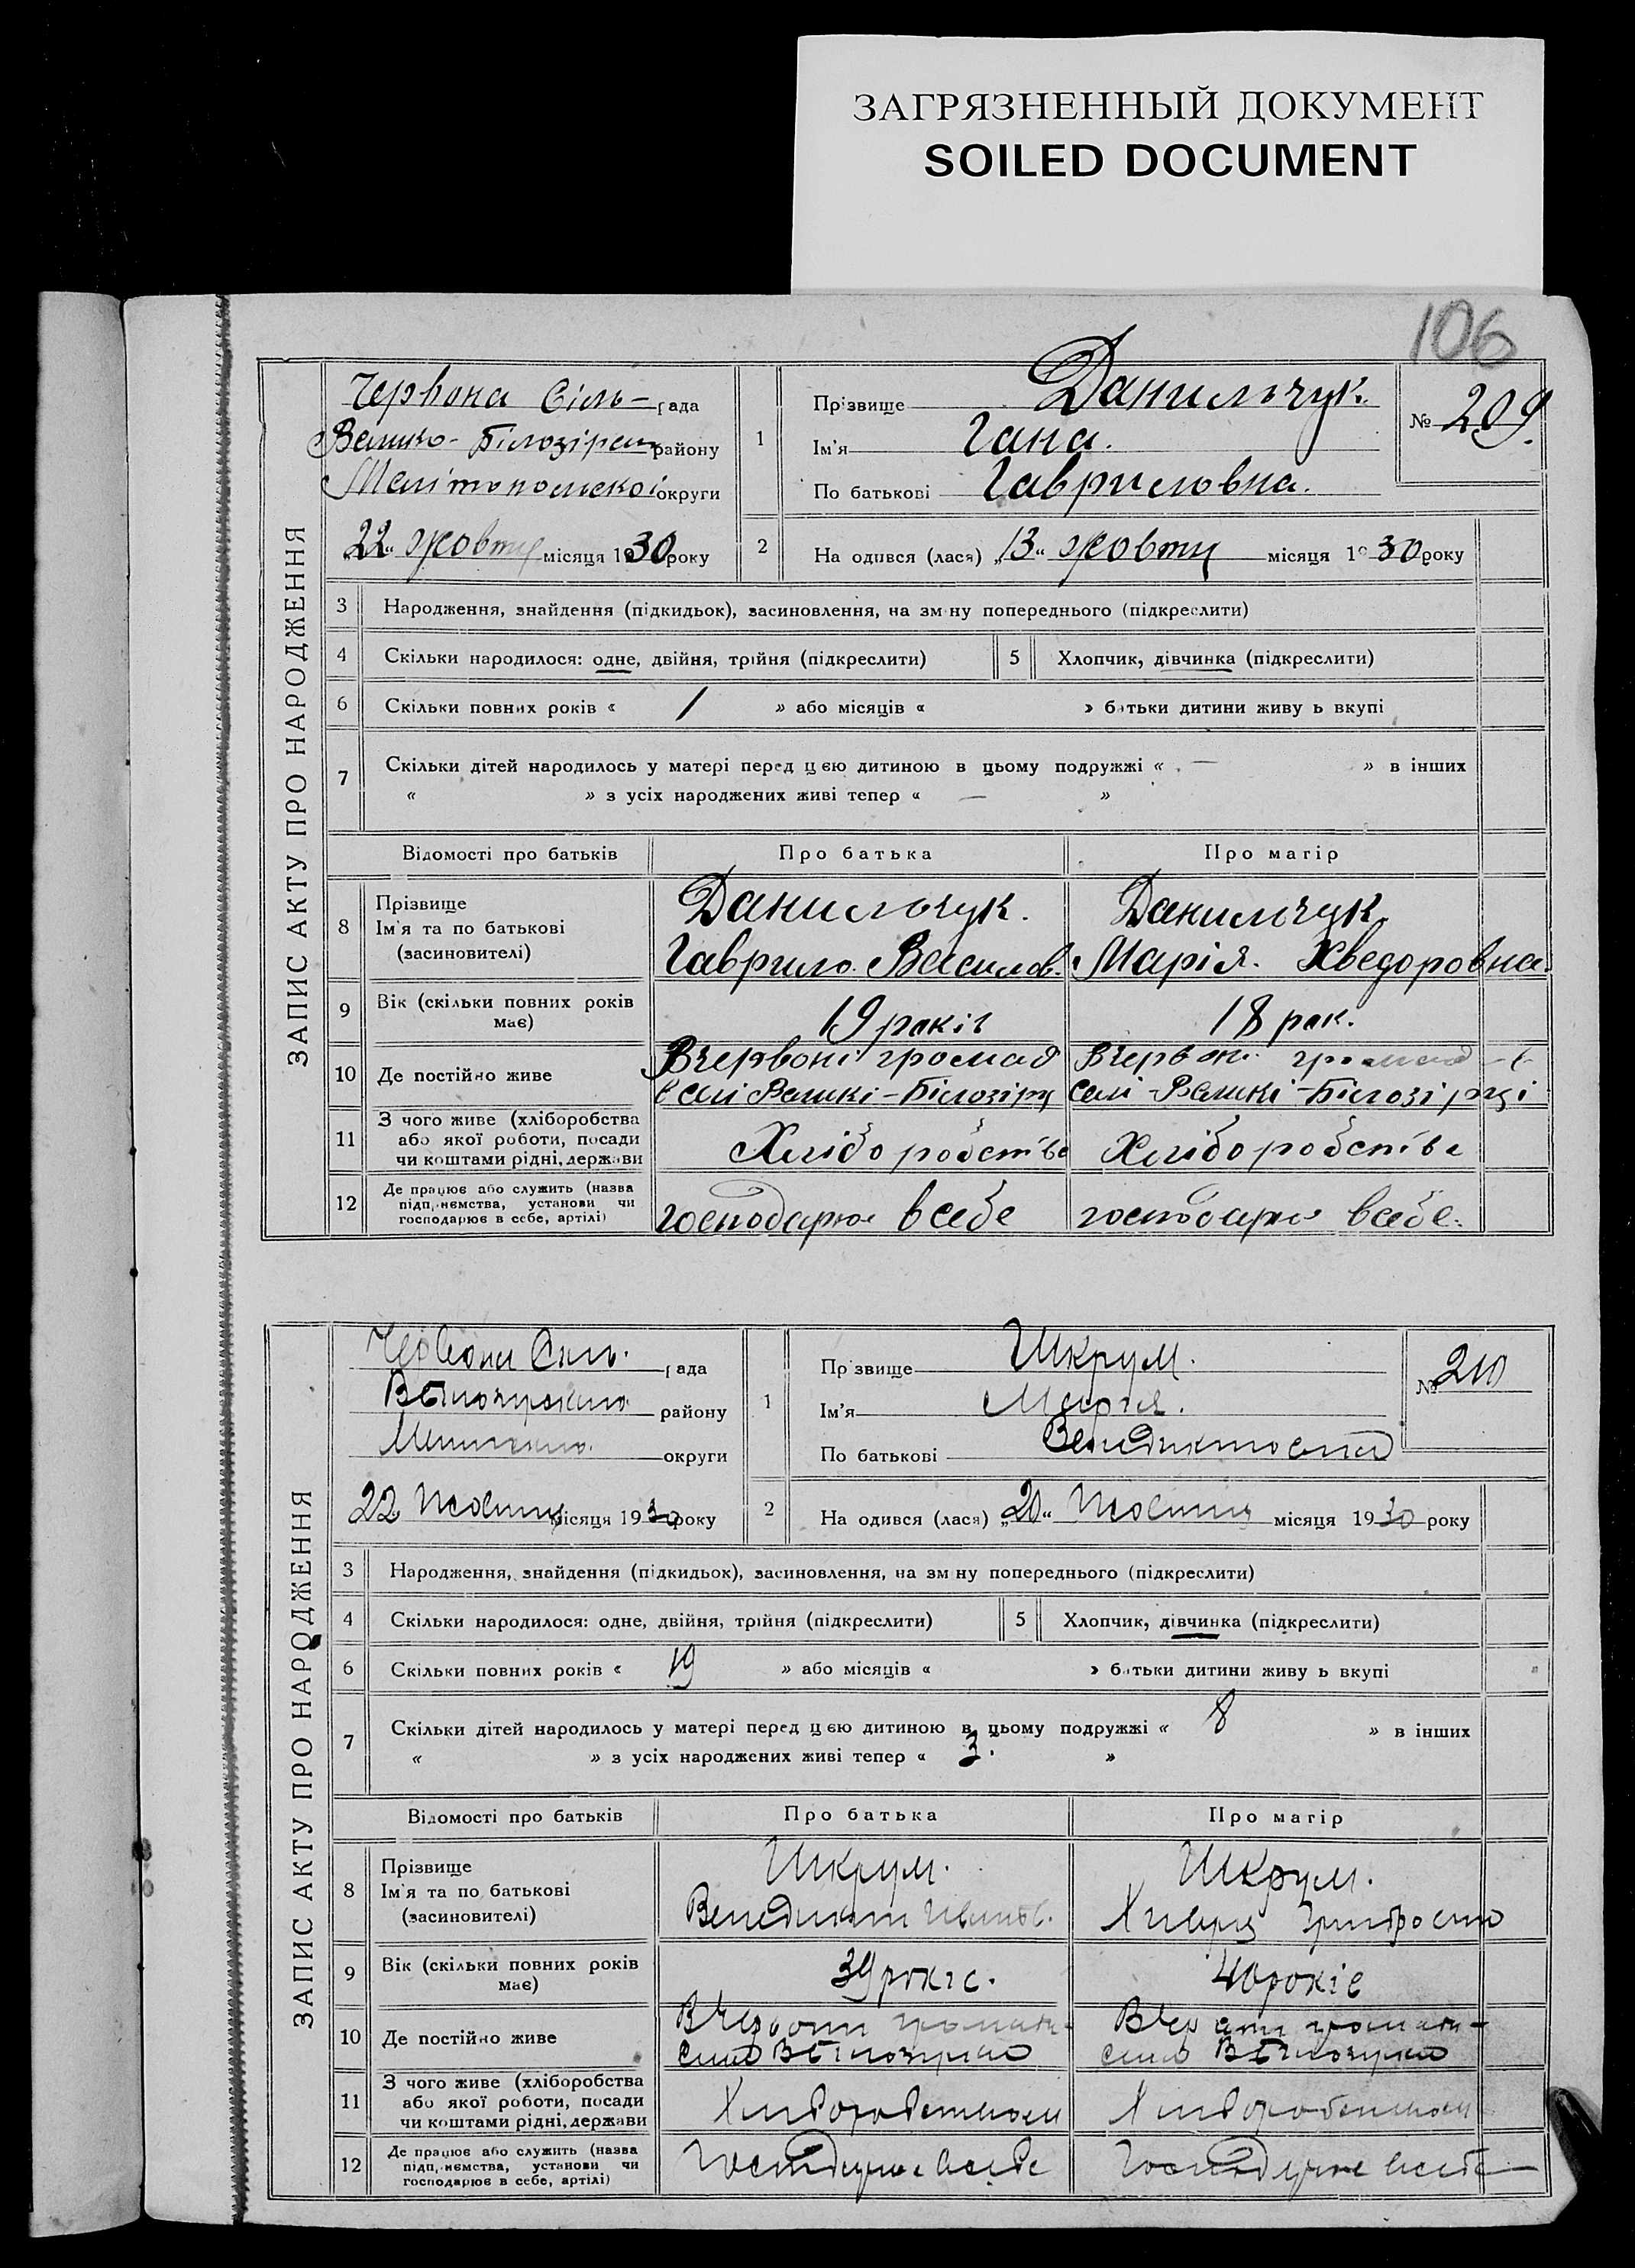 ЗАГРЯЗНЕННЫЙ ДОКУМЕНТ
SOILED DOCUMENT
106
ЗАПИС АКТУ ПРО НАРОДЖЕННЯ
Червона Сіль- рада
Велико-Білозірськ району
Мелітопольскої округи
„22“ жовтня місяця 1930 року
1
Прізвище Данильчук.
Ім'я Гана.
По батькові Гавриловна.
№ 209.
2 На одився (лася) „13“ жовтня місяця 1930 року
3 Народження, знайдення (підкидьок), засиновлення, на зм ну попереднього (підкреслити)
4 Скільки народилося: одне, двійня, трійня (підкреслити)
5 Хлопчик, дівчинка (підкреслити)
6 Скільки повних років « 1 » або місяців « » батьки дитини живу ь вкупі
7 Скільки дітей народилось у матері перед цєю дитиною в цьому подружжі « — » в інших
« » з усіх народжених живі тепер « — »
Відомості про батьків Про батька Про матір
8 Прізвище
Ім'я та по батькові
(засиновителі)
Данильчук.
Гаврило Василов.
Данильчук
Марія. Хведоровна.
9 Вік (скільки повних років має)
19 років
18 рок.
10 Де постійно живе
В червоні громад
в селі Великі-Білозірц
В червон. громад
селі-Великі-Білозірці
11 З чого живе (хліборобства
або якої роботи, посади
чи коштами рідні, держави
Хліборобство
Хліборобство
12 Де працює або служить (назва
підприємства, установи чи
господарює в себе, артілі)
господарює в себе
господарює в себе.
ЗАПИС АКТУ ПРО НАРОДЖЕННЯ
Червона Силь. рада
району
округи
22 Жовтня місяця 1930 року
1
Прізвище Шкрум.
Ім'я Марія.
По батькові Венедиктовна
№ 210
2 На одився (лася) „20“ Жовтня місяця 1930 року
3 Народження, знайдення (підкидьок), засиновлення, на зм ну попереднього (підкреслити)
4 Скільки народилося: одне, двійня, трійня (підкреслити)
5 Хлопчик, дівчинка (підкреслити)
6 Скільки повних років « 19 » або місяців « » батьки дитини живу ь вкупі
7 Скільки дітей народилось у матері перед цєю дитиною в цьому подружжі « 8 » в інших
« » з усіх народжених живі тепер « 3. »
Відомості про батьків Про батька Про матір
8 Прізвище
Ім'я та по батькові
(засиновителі)
Шкрум.
Венедикт Иванов.
Шкрум.
9 Вік (скільки повних років має)
39 років.
40 років
10 Де постійно живе
В Червони громади
В Червони громади
11 З чого живе (хліборобства
або якої роботи, посади
чи коштами рідні, держави
Хлиборобством
Хлиборобством
12 Де працює або служить (назва
підприємства, установи чи
господарює в себе, артілі)
Господарює в себе
Господарює в себе